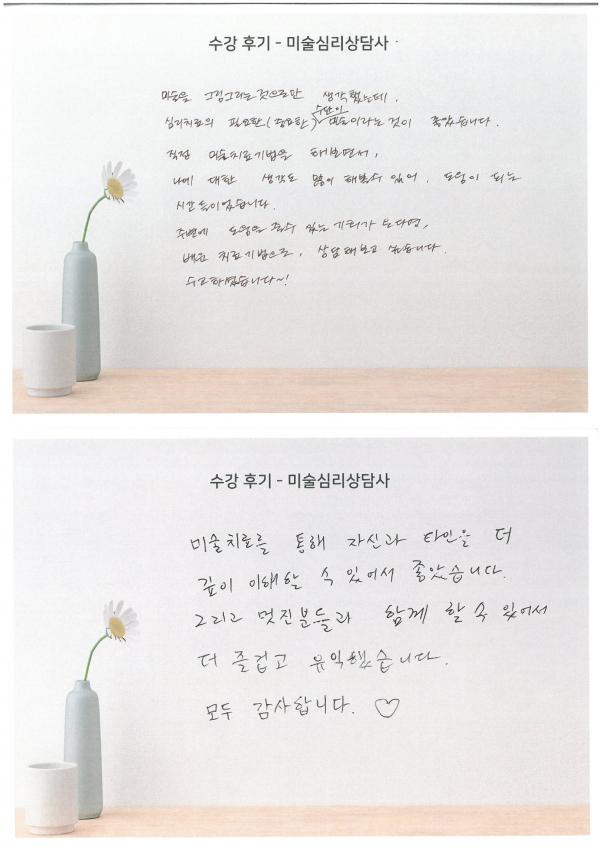 수강 후기 - 미술심리상담사
미술을 그림그리는것으로만 생각했는데,
심리치료의 필요한(중요한) 수단인 미술이라는것이 좋았습니다.
직접 미술치료기법을 해보면서,
나에 대한 생각도 많이 해볼수 있어, 도움이 되는
시간들이었습니다.
주변에 도움을 줄수 있는 기회가 온다면,
배운 치료기법으로, 상담해보고 싶습니다.
수고하셨습니다~!
수강 후기 - 미술심리상담사
미술치료를 통해 자신과 타인을 더
깊이 이해할 수 있어서 좋았습니다.
그리고 멋진분들과 함께 할 수 있어서
더 즐겁고 유익했습니다.
모두 감사합니다. ♡